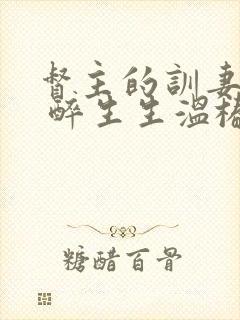 督主的訓妻
醉生生溫椿
糖醋百骨